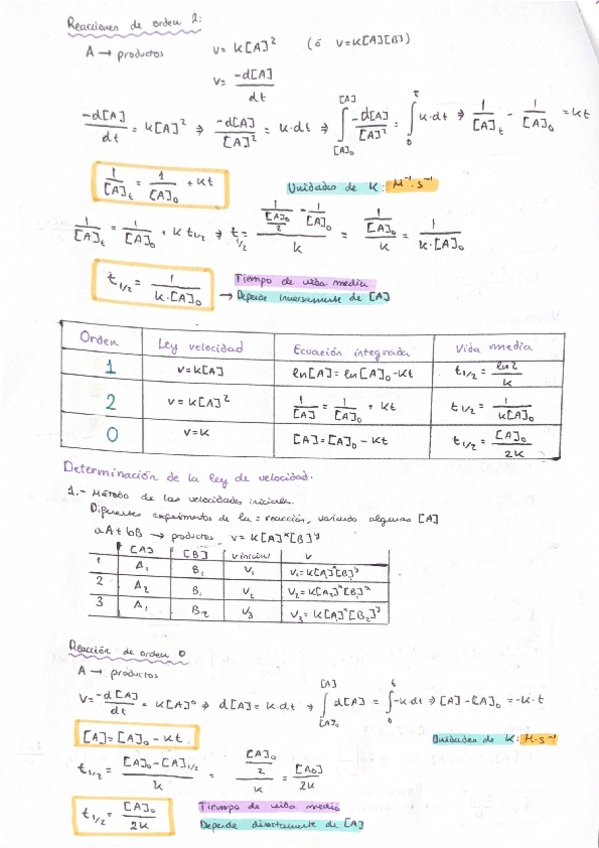 Reacciones de orden 2:
A → productos v = K[A]² (ó v=K[A][B])
v = -d[A]/dt
-d[A]/dt = K[A]² ⇒ -d[A]/[A]² = K·dt ⇒ ∫_{[A]₀}^{[A]} -d[A]/[A]² = ∫_0^t K·dt ⇒ 1/[A]t - 1/[A]₀ = Kt
1/[A]t = 1/[A]₀ + Kt Unidades de K: M⁻¹·s⁻¹
1/[A]t = 1/[A]₀ + K t1/2 ⇒ t1/2 = (1/([A]₀/2) - 1/[A]₀)/K = (1/[A]₀)/K = 1/(K·[A]₀)
t1/2 = 1/(K·[A]₀) Tiempo de vida media
→ Depende inversamente de [A]
Orden Ley velocidad Ecuación integrada Vida media
1 v=K[A] ln[A]=ln[A]₀-Kt t1/2 = ln2/K
2 v=K[A]² 1/[A] = 1/[A]₀ + Kt t1/2 = 1/K[A]₀
0 v=K [A]=[A]₀-Kt t1/2 = [A]₀/2K
Determinación de la ley de velocidad.
1.- Método de las velocidades iniciales.
Diferentes experimentos de la = reacción, variando algunas [A]
aA+bB → productos, v=K[A]ˣ[B]ʸ
[A] [B] v inicial v
1 A₁ B₁ V₁ V₁=K[A₁]ˣ[B₁]ʸ
2 A₂ B₁ V₂ V₂=K[A₂]ˣ[B₁]ʸ
3 A₁ B₂ V₃ V₃=K[A₁]ˣ[B₂]ʸ
Reacción de orden 0
A → productos
V = -d[A]/dt = K[A]⁰ ⇒ d[A] = K·dt ⇒ ∫_{[A]₀}^{[A]} d[A] = ∫_0^t -K·dt ⇒ [A]-[A]₀ = -K·t
[A]=[A]₀-Kt. Unidades de K: M·s⁻¹
t1/2 = ([A]₀-[A]1/2)/K = ([A]₀/2)/K = [A₀]/2K
t1/2 = [A]₀/2K Tiempo de vida media
Depende directamente de [A]